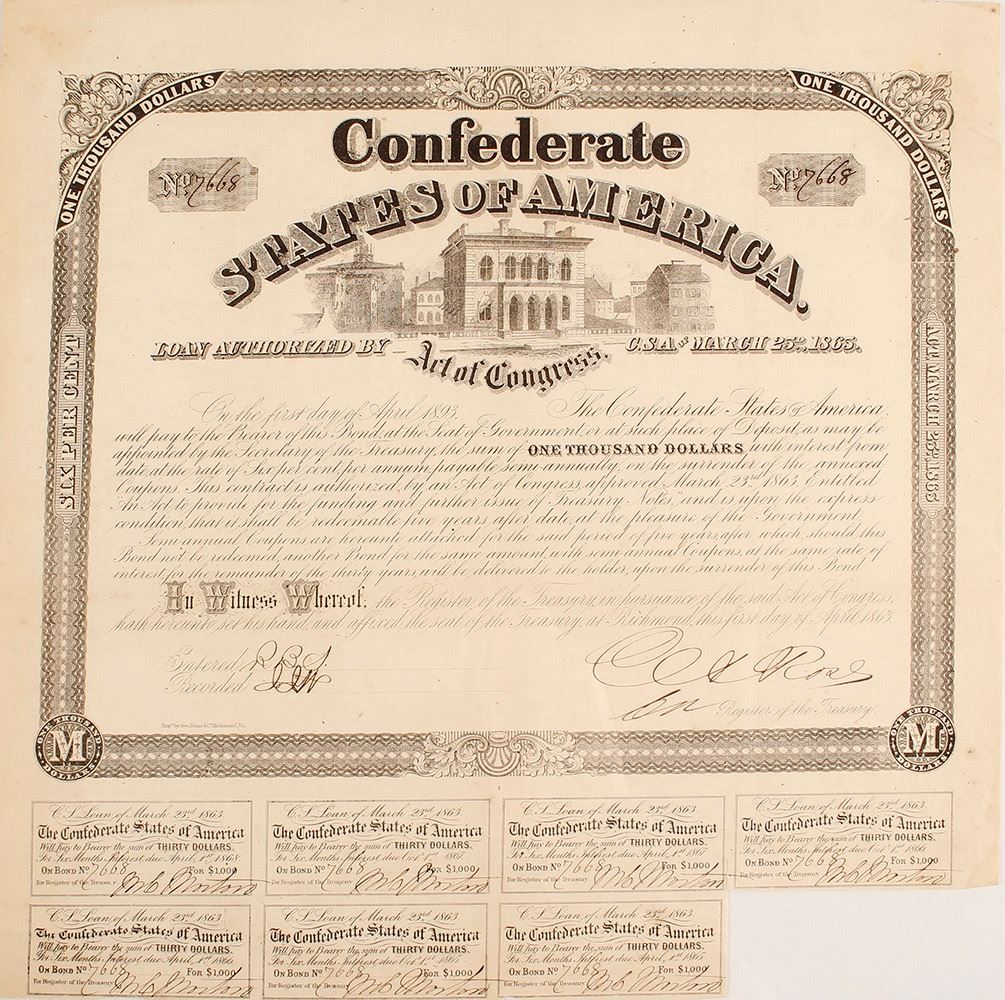 ONE THOUSAND DOLLARS
ONE THOUSAND DOLLARS
Confederate
No 7668
No 7668
STATES OF AMERICA.
LOAN AUTHORIZED BY Act of Congress. C.S.A. OF MARCH 23D, 1863.
SIX PER CENT
ACT MARCH 23D, 1863
On the first day of April 1893, The Confederate States of America,
will pay to the Bearer of this Bond, at the Seat of Government, or at such place of Deposit, as may be
appointed by the Secretary of the Treasury, the sum of ONE THOUSAND DOLLARS, with interest from
date at the rate of Six per cent, per annum, payable semi-annually, on the surrender of the annexed
Coupons. This contract is authorized by an Act of Congress, approved March 23rd 1863, Entitled
"An Act to provide for the funding and further issue of Treasury Notes," and is upon the express
condition, that it shall be redeemable five years after date, at the pleasure of the Government.
Semi-annual Coupons are hereunto attached for the said period of five years, after which, should this
Bond not be redeemed, another Bond for the same amount, with semi-annual Coupons, at the same rate of
interest for the remainder of the thirty years, will be delivered to the holder, upon the surrender of this Bond.
In Witness Whereof, the Register of the Treasury, in pursuance of the said Act of Congress,
hath hereunto set his hand, and affixed the seal of the Treasury, at Richmond, this first day of April, 1863.
Entered
Recorded
C A Rose
Register of the Treasury.
ONE THOUSAND
M
DOLLARS
ONE THOUSAND
M
DOLLARS
C.S. Loan of March 23rd 1863.
The Confederate States of America
Will pay to Bearer the sum of THIRTY DOLLARS.
For Six Months Interest due April, 1st 1868.
ON BOND No 7668 FOR $1,000
For Register of the Treasury
C.S. Loan of March 23rd 1863.
The Confederate States of America
Will pay to Bearer the sum of THIRTY DOLLARS.
For Six Months Interest due Oct. 1st
ON BOND No 7668 FOR $1,000
For Register of the Treasury
C.S. Loan of March 23rd 1863.
The Confederate States of America
Will pay to Bearer the sum of THIRTY DOLLARS.
For Six Months Interest due April, 1st
ON BOND No 7668 FOR $1,000
For Register of the Treasury
C.S. Loan of March 23rd 1863.
The Confederate States of America
Will pay to Bearer the sum of THIRTY DOLLARS.
For Six Months Interest due April, 1st 1866.
ON BOND No 7668 FOR $1,000
For Register of the Treasury
C.S. Loan of March 23rd 1863.
The Confederate States of America
Will pay to Bearer the sum of THIRTY DOLLARS.
For Six Months Interest due April, 1st
ON BOND No 7668 FOR $1,000
For Register of the Treasury
C.S. Loan of March 23rd 1863.
The Confederate States of America
Will pay to Bearer the sum of THIRTY DOLLARS.
For Six Months Interest due Oct. 1st
ON BOND No 7668 FOR $1,000
For Register of the Treasury
C.S. Loan of March 23rd 1863.
The Confederate States of America
Will pay to Bearer the sum of THIRTY DOLLARS.
For Six Months Interest due April, 1st
ON BOND No 7668 FOR $1,000
For Register of the Treasury